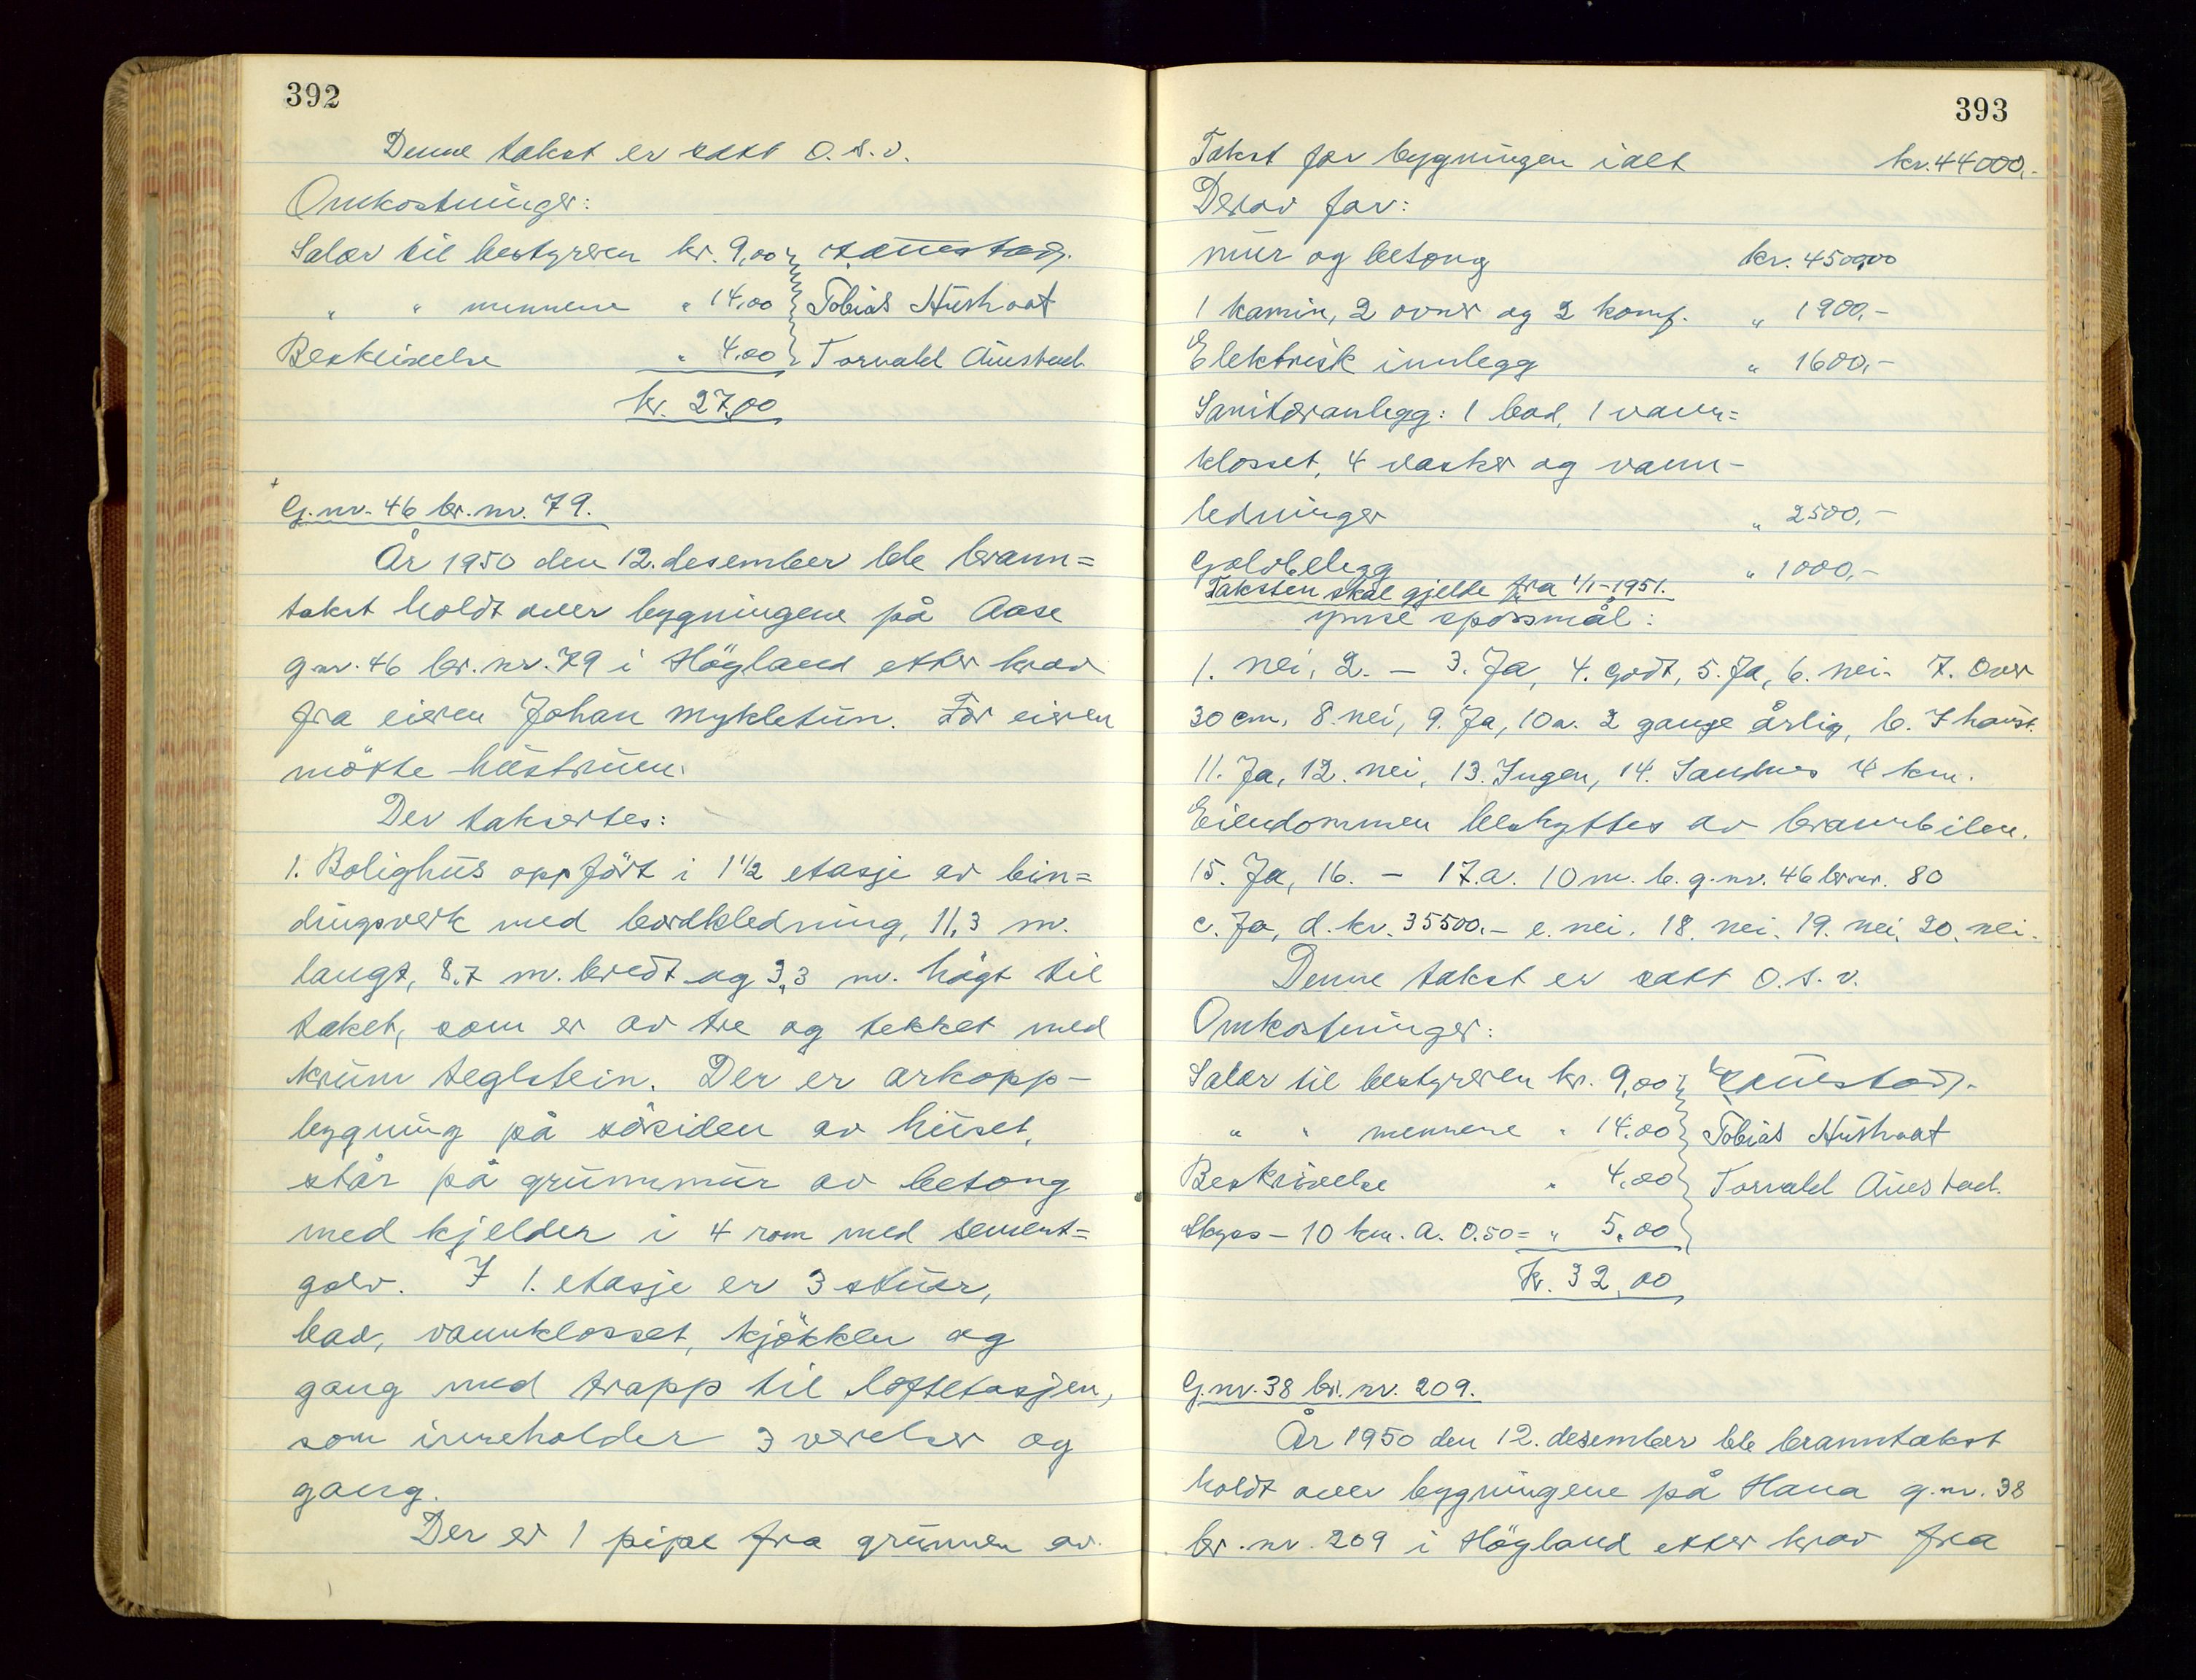 392
Denne takst er satt o.s.v.
Omkostninger:
Salær til bestyreren kr. 9,00
" " mennene " 14,00 Tobias Husvoat
Beskrivelse " 4,00 Torvald Austad.
kr. 27,00
G.nr. 46 br.nr. 79.
År 1950 den 12. desember ble brann=
takst holdt over bygningene på Aase
g.nr. 46 br.nr. 79 i Högland etter krav
fra eieren Johan Mykletun. For eieren
mötte hustruen.
Der taksertes:
1. Bolighus oppfört i 1 1/2 etasje av bin=
dingsverk med bordkledning, 11,3 m.
langt, 8,7 m. bredt og 3,3 m. högt til
taket, som er av tre og tekket med
krum teglstein. Der er arkopp-
bygning på sörsiden av huset,
står på grunnmur av betong
med kjelder i 4 rom med sement=
golv. I 1. etasje er 3 stuer,
bad, vannklosset, kjökken og
gang med trapp til loftetasjen,
som inneholder 3 værelser og
gang.
Der er 1 pipe fra grunnen av.
393
Takst for bygningen ialt kr. 44000,-
Derav for:
mur og betong kr. 4500,00
1 kamin, 2 ovner og 2 komf. " 1900,-
Elektrisk innlegg " 1600,-
Sanitæranlegg: 1 bad, 1 vann=
klosset, 4 vasker og vann-
ledninger " 2500,-
Golvbelegg " 1000,-
Taksten skal gjelde fra 1/1-1951.
Ymse spörsmål:
1. nei, 2. - 3. Ja, 4. godt, 5. Ja, 6. nei. 7. Over
30 cm, 8. nei, 9. Ja, 10 a. 2 gange årlig, b. I haust.
11. Ja, 12. nei, 13. Ingen, 14. Sandnes 4 km.
Eiendommen beskyttes av brannbilen.
15. Ja, 16. - 17. a. 10 m. b. g.nr. 46 br.nr. 80
c. Ja, d. kr. 35500.- e. nei. 18. nei. 19. nei. 20. nei.
Denne takst er satt o.s.v.
Omkostninger:
Salær til bestyreren kr. 9,00
" " mennene " 14.00 Tobias Husvoat
Beskrivelse " 4,00 Torvald Austad.
Skyss - 10 km. a. 0.50 = " 5,00
kr. 32,00
G.nr. 38 br.nr. 209.
År 1950 den 12. desember ble branntakst
holdt over bygningene på Hana g.nr. 38
br.nr. 209 i Högland etter krav fra